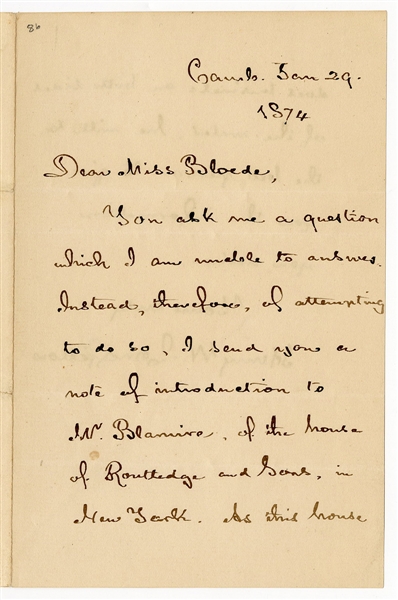 86
Camb. Jan 29.
1874
Dear Miss Bloede,
You ask me a question
which I am unable to answer.
Instead, therefore, of attempting
to do so, I send you a
note of introduction to
Mr. Blamire, of the house
of Routledge and Sons, in
New York. As this house